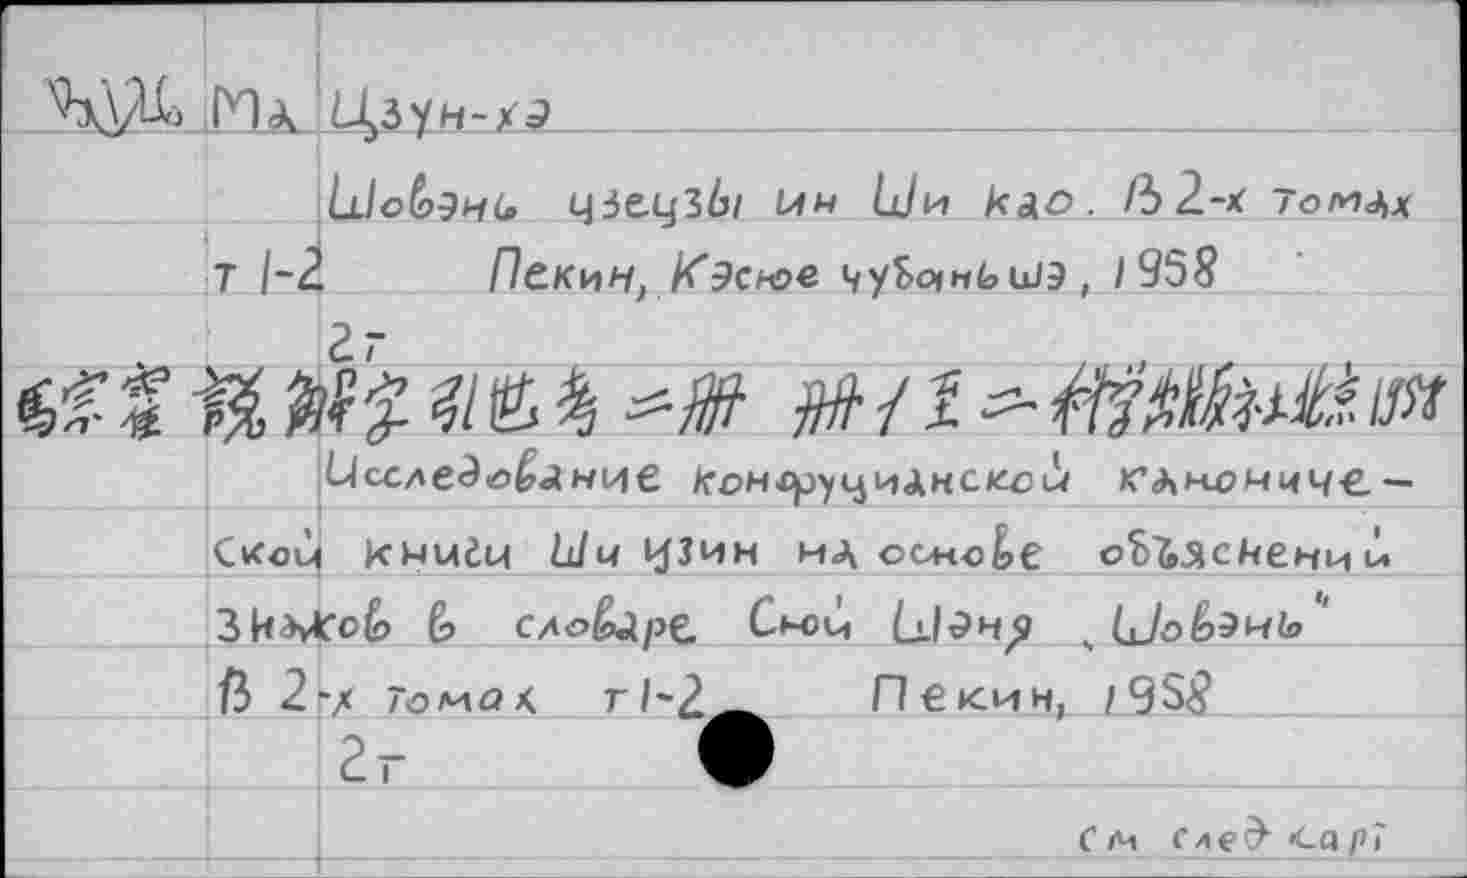 Ма Цзун-хэ
Шовэнь цзецзы ин Ши као. В 2-х томах
т 1-2 Пекин, Кэсюе чубаньшэ, 1958
2т
霍 說解字引 考 二冊 冊 1 至 二 科學 社
Исследование конфуцианской канониче-
ской книги Ши цзин на основе объяснений
знаков в словаре Сюй Шэня „Шовэнь"
В 2-х томах т 1-2 Пекин, 1958
2т
См след карт